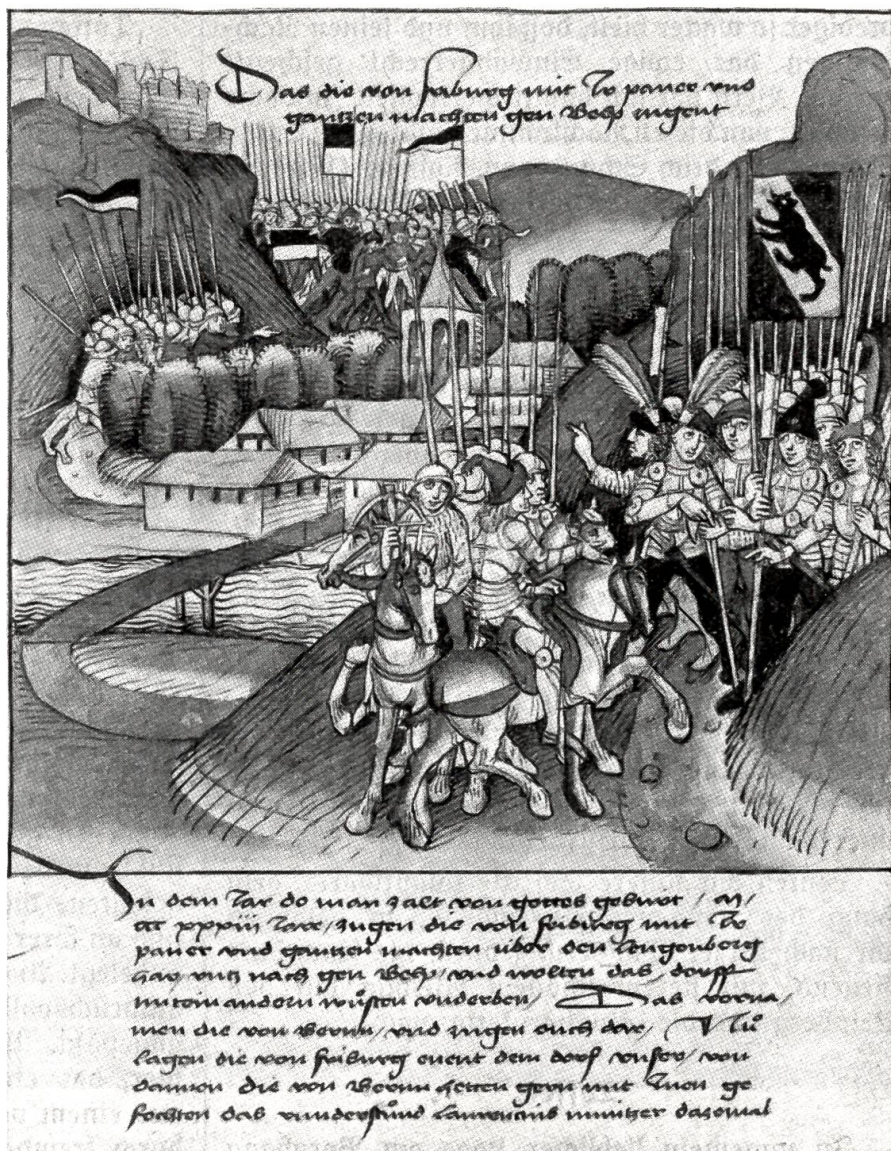 Das die von friburg mit Ir paner vnd
gantzen machten gen Belp zugent
In dem Jar do man zalt von gottes geburt / M /
ccc xxxiii Jare / zugen die von friburg mit Ir
paner vnd gantzen machten über den lengenberg
har / vntz nach gen Belp / vnd wolten das / dorff
mitein andern wůsten vnderben / Das verna /
men die von Bernn / vnd zugen ouch dar / Nů
lagen die von friburg enent dem dorf vnser / von
dannen die von Bernn hetten gern mit Inen ge
fochten das vnnderstůnd laurencius müntzer dazemal